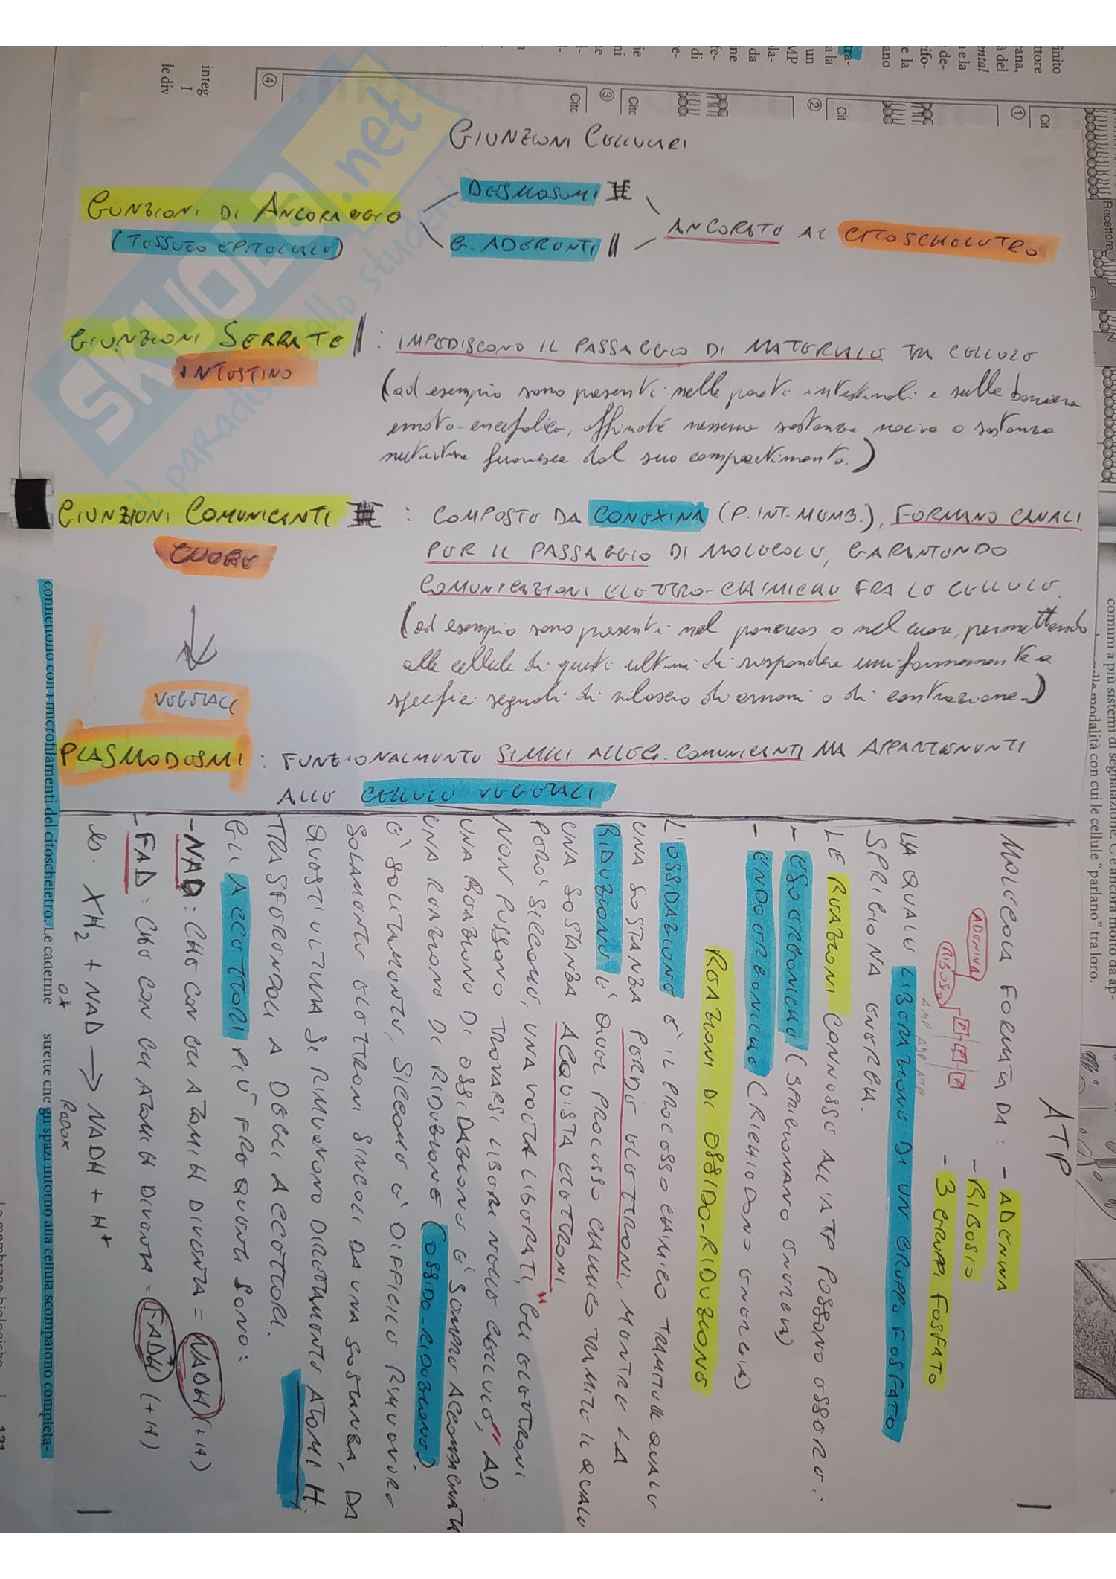 GIUNZIONI CELLULARI
GIUNZIONI DI ANCORAGGIO
(TESSUTO EPITELIALE)
DESMOSOMI
G. ADERENTI
ANCORATE AL CITOSCHELETRO
GIUNZIONI SERRATE : IMPEDISCONO IL PASSAGGIO DI MATERIALE TRA CELLULE
INTESTINO
(ad esempio sono presenti nelle pareti intestinali e sulla barriera
emato-encefalica, affinché nessuna sostanza nociva o sostanza
nutritiva fuoriesca dal suo compartimento.)
GIUNZIONI COMUNICANTI : COMPOSTE DA CONEXINA (P. INT. MEMB.), FORMANO CANALI
CUORE
PER IL PASSAGGIO DI MOLECOLE, GARANTENDO
COMUNICAZIONI ELETTRO-CHIMICHE FRA LE CELLULE.
(ad esempio sono presenti nel pancreas o nel cuore, permettendo
alle cellule di questi ultimi di rispondere uniformemente a
specifici segnali di rilascio di ormoni o di contrazione)
VEGETALI
PLASMODESMI : FUNZIONALMENTE SIMILI ALLE G. COMUNICANTI MA APPARTENENTI
ALLE CELLULE VEGETALI
ATP
MOLECOLA FORMATA DA : - ADENINA
- RIBOSIO
- 3 GRUPPI FOSFATO
ADENINA
RIBOSIO
P P P
LA QUALE LIBERAZIONE DI UN GRUPPO FOSFATO
SPRIGIONA ENERGIA.
LE REAZIONI CONNESSE ALL'ATP POSSONO ESSERE :
- ESOERGONICHE (SPRIGIONANO ENERGIA)
- ENDOERGONICHE (RICHIEDONO ENERGIA)
REAZIONI DI OSSIDO-RIDUZIONE
L'OSSIDAZIONE È IL PROCESSO CHIMICO TRAMITE QUALE
UNA SOSTANZA PERDE ELETTRONI, MENTRE LA
RIDUZIONE È QUEL PROCESSO CHIMICO TRAMITE IL QUALE
UNA SOSTANZA ACQUISTA ELETTRONI.
PERÒ SICCOME, UNA VOLTA LIBERATI, "GLI ELETTRONI
NON POSSONO TROVARSI LIBERI NELLE CELLULE", AD
UNA REAZIONE DI OSSIDAZIONE È SEMPRE ACCOMPAGNATA
UNA REAZIONE DI RIDUZIONE (OSSIDO-RIDUZIONE).
E SOLITAMENTE, SICCOME È DIFFICILE RIMUOVERE
SOLAMENTE ELETTRONI SINGOLI DA UNA SOSTANZA, DA
QUEST'ULTIMA SI RIMUOVONO DIRETTAMENTE ATOMI H.
TRASFERENDOLI A DEGLI ACCETTORI.
GLI ACCETTORI PIÙ FREQUENTI SONO :
- NAD : CHE CON GLI ATOMI H DIVENTA = NADH (+H)
- FAD : CHE CON GLI ATOMI H DIVENTA = FADH (+H)
Es. XH2 + NAD → NADH + H+
REDOX
connettono con i microfilamenti del citoscheletro. Le caderine
strette che gli spazi intorno alla cellula scompaiono completa-
modalità con cui le cellule "parlano" tra loro.
integ
le div
①
②
③
④
Cit
Cit
Citc
Citc
SKUOLA.net
il paradiso dello studente